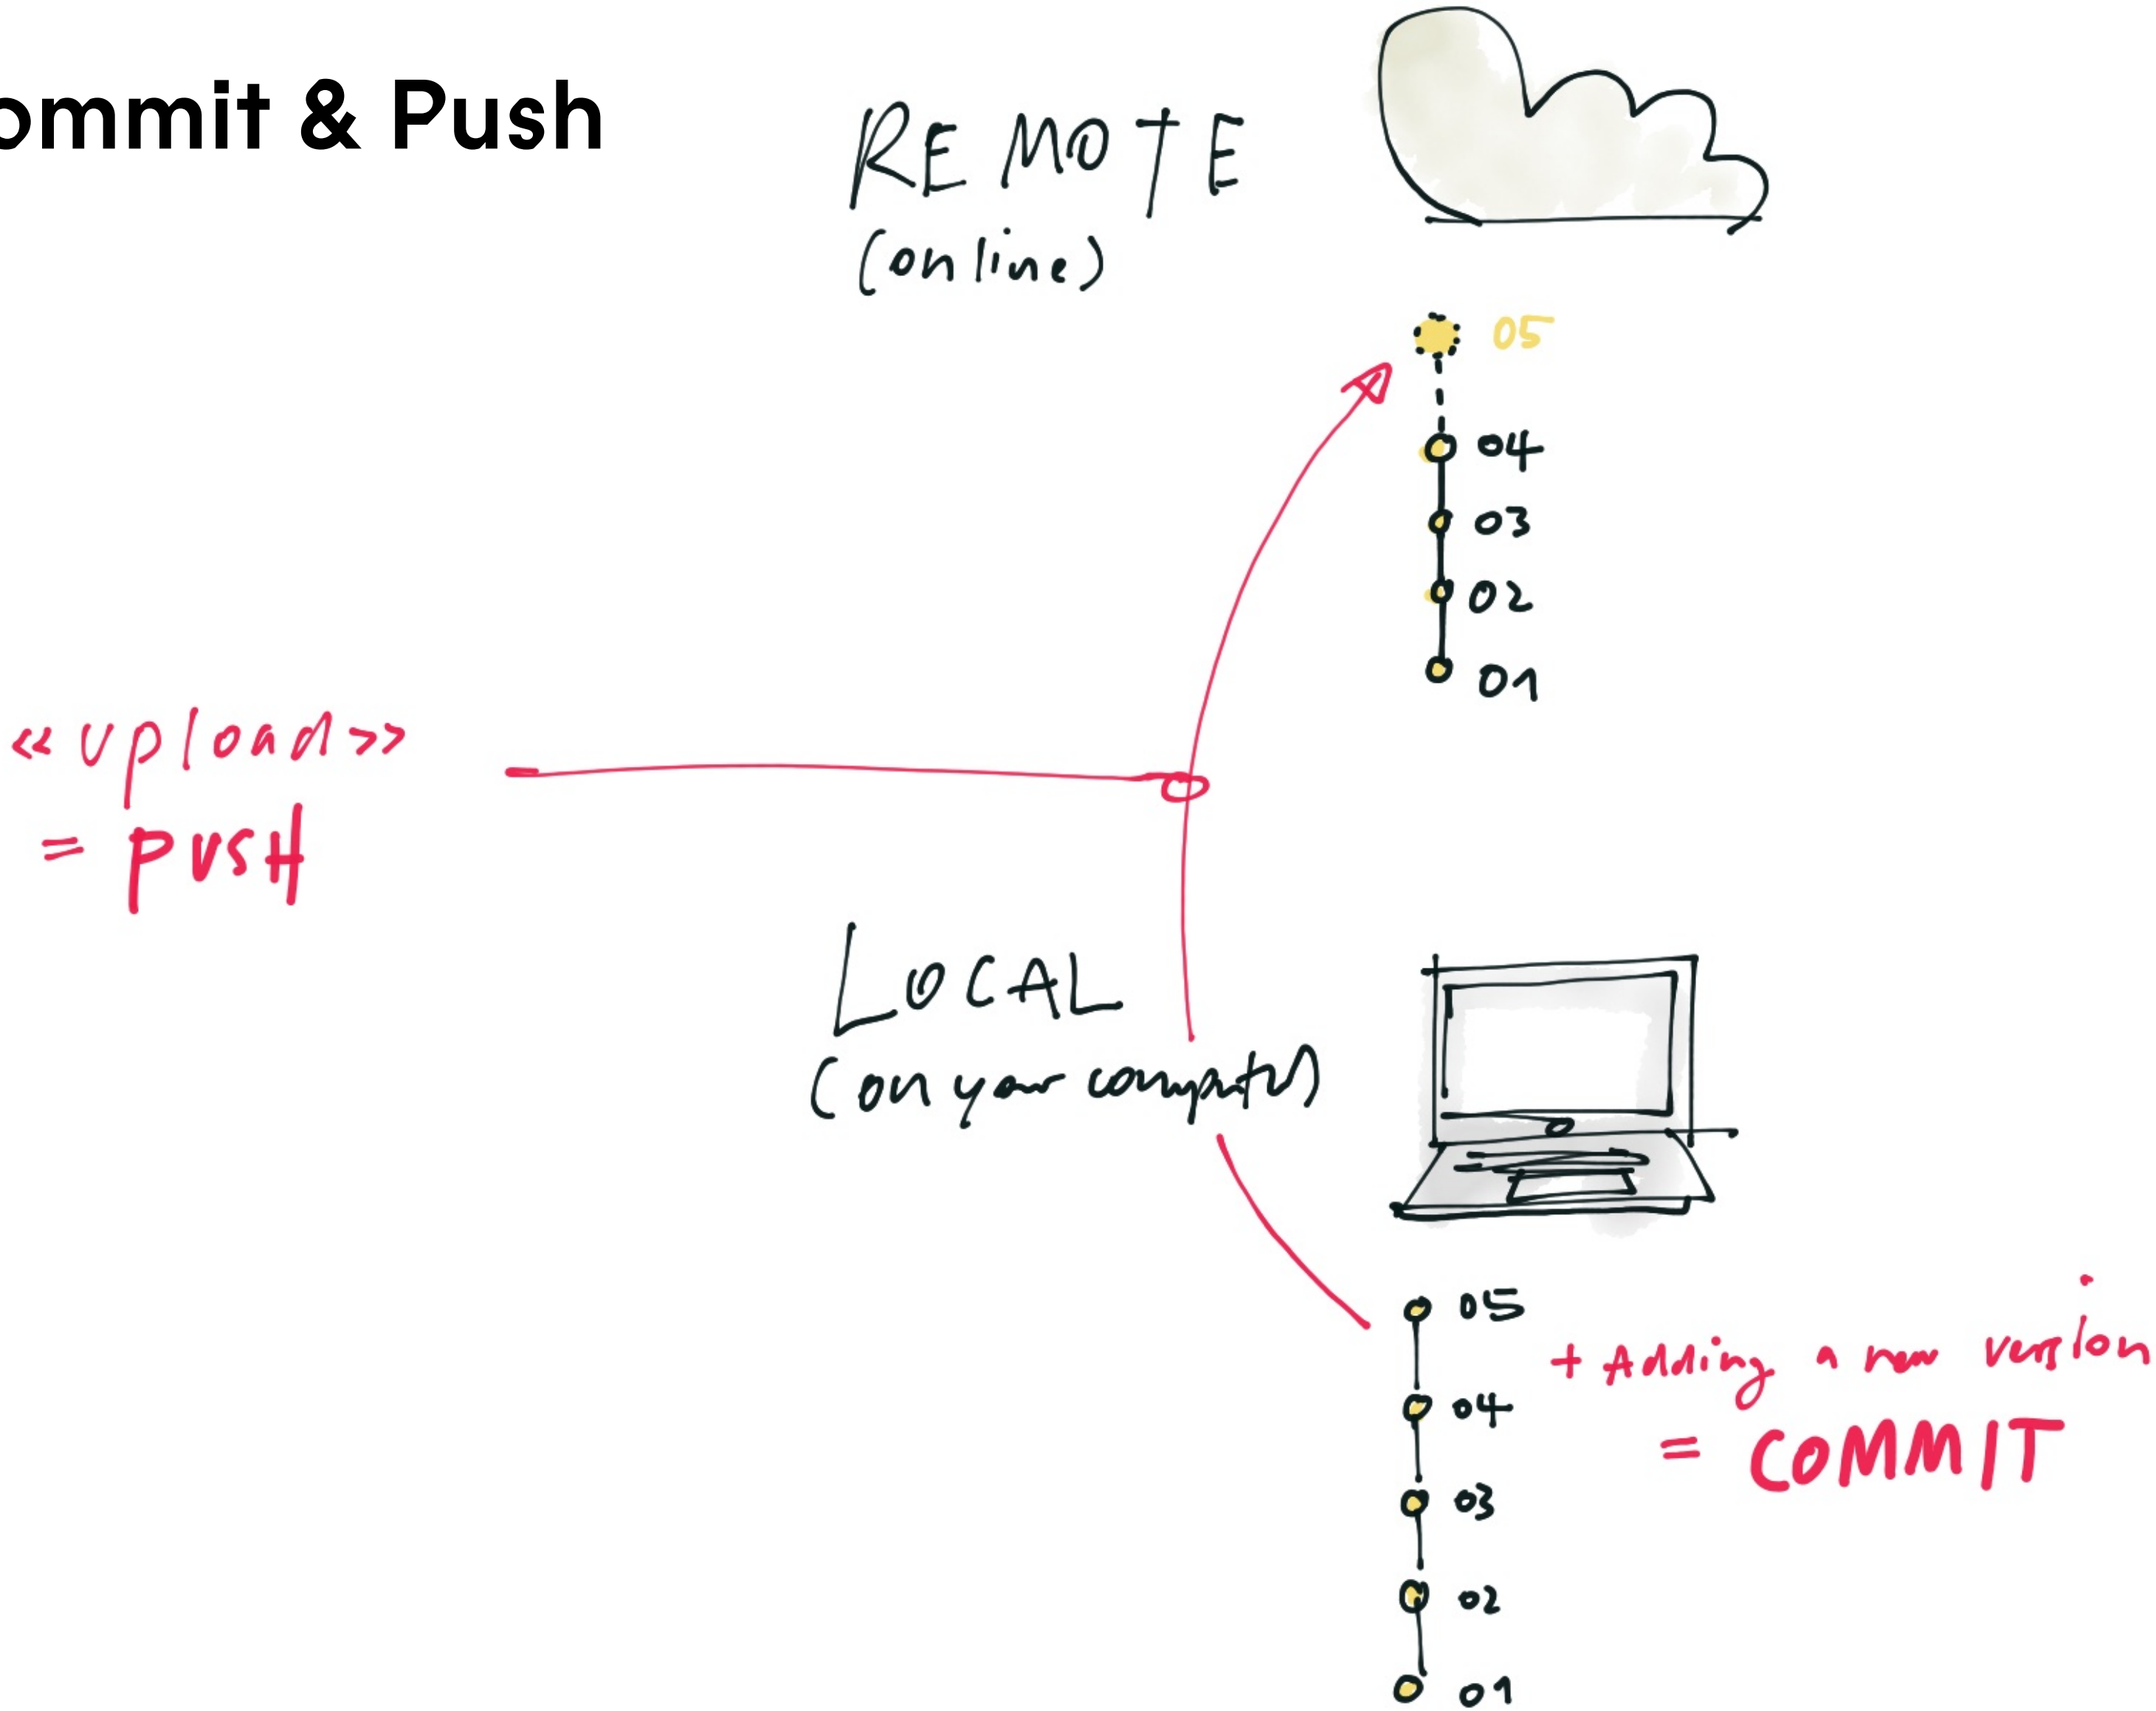 ommit & Push
REMOTE
(online)
05
04
03
02
01
«upload»
= PUSH
LOCAL
(on your computer)
05
+ Adding a new version
= COMMIT
04
03
02
01